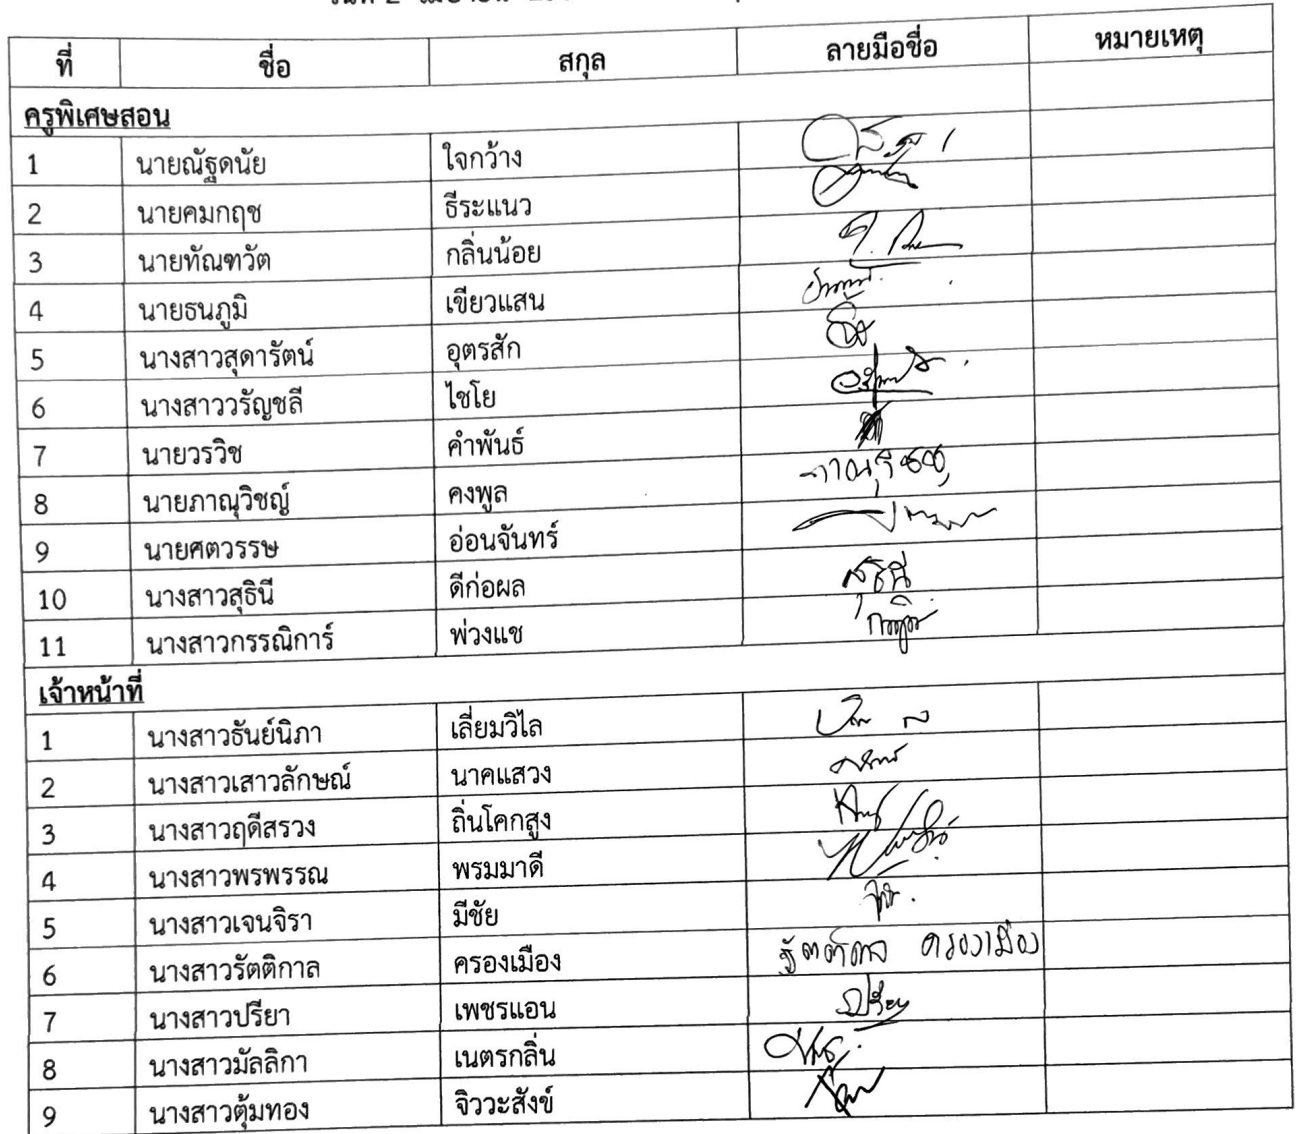 วันที่ 2
ที่ ชื่อ สกุล ลายมือชื่อ หมายเหตุ
ครูพิเศษสอน
1 นายณัฐดนัย ใจกว้าง
2 นายคมกฤช ธีระแนว
3 นายทัณฑวัต กลิ่นน้อย
4 นายธนภูมิ เขียวแสน
5 นางสาวสุดารัตน์ อุตรสัก
6 นางสาววรัญชลี ไชโย
7 นายวรวิช คำพันธ์
8 นายภาณุวิชญ์ คงพูล ภาณุวิชญ์
9 นายศตวรรษ อ่อนจันทร์
10 นางสาวสุธินี ดีก่อผล สุธินี
11 นางสาวกรรณิการ์ พ่วงแช
เจ้าหน้าที่
1 นางสาวธันย์นิภา เลี่ยมวิไล
2 นางสาวเสาวลักษณ์ นาคแสวง
3 นางสาวฤดีสรวง ถิ่นโคกสูง
4 นางสาวพรพรรณ พรมมาดี
5 นางสาวเจนจิรา มีชัย
6 นางสาวรัตติกาล ครองเมือง รัตติกาล ครองเมือง
7 นางสาวปรียา เพชรแอน ปรียา
8 นางสาวมัลลิกา เนตรกลิ่น
9 นางสาวตุ้มทอง จิววะสังข์